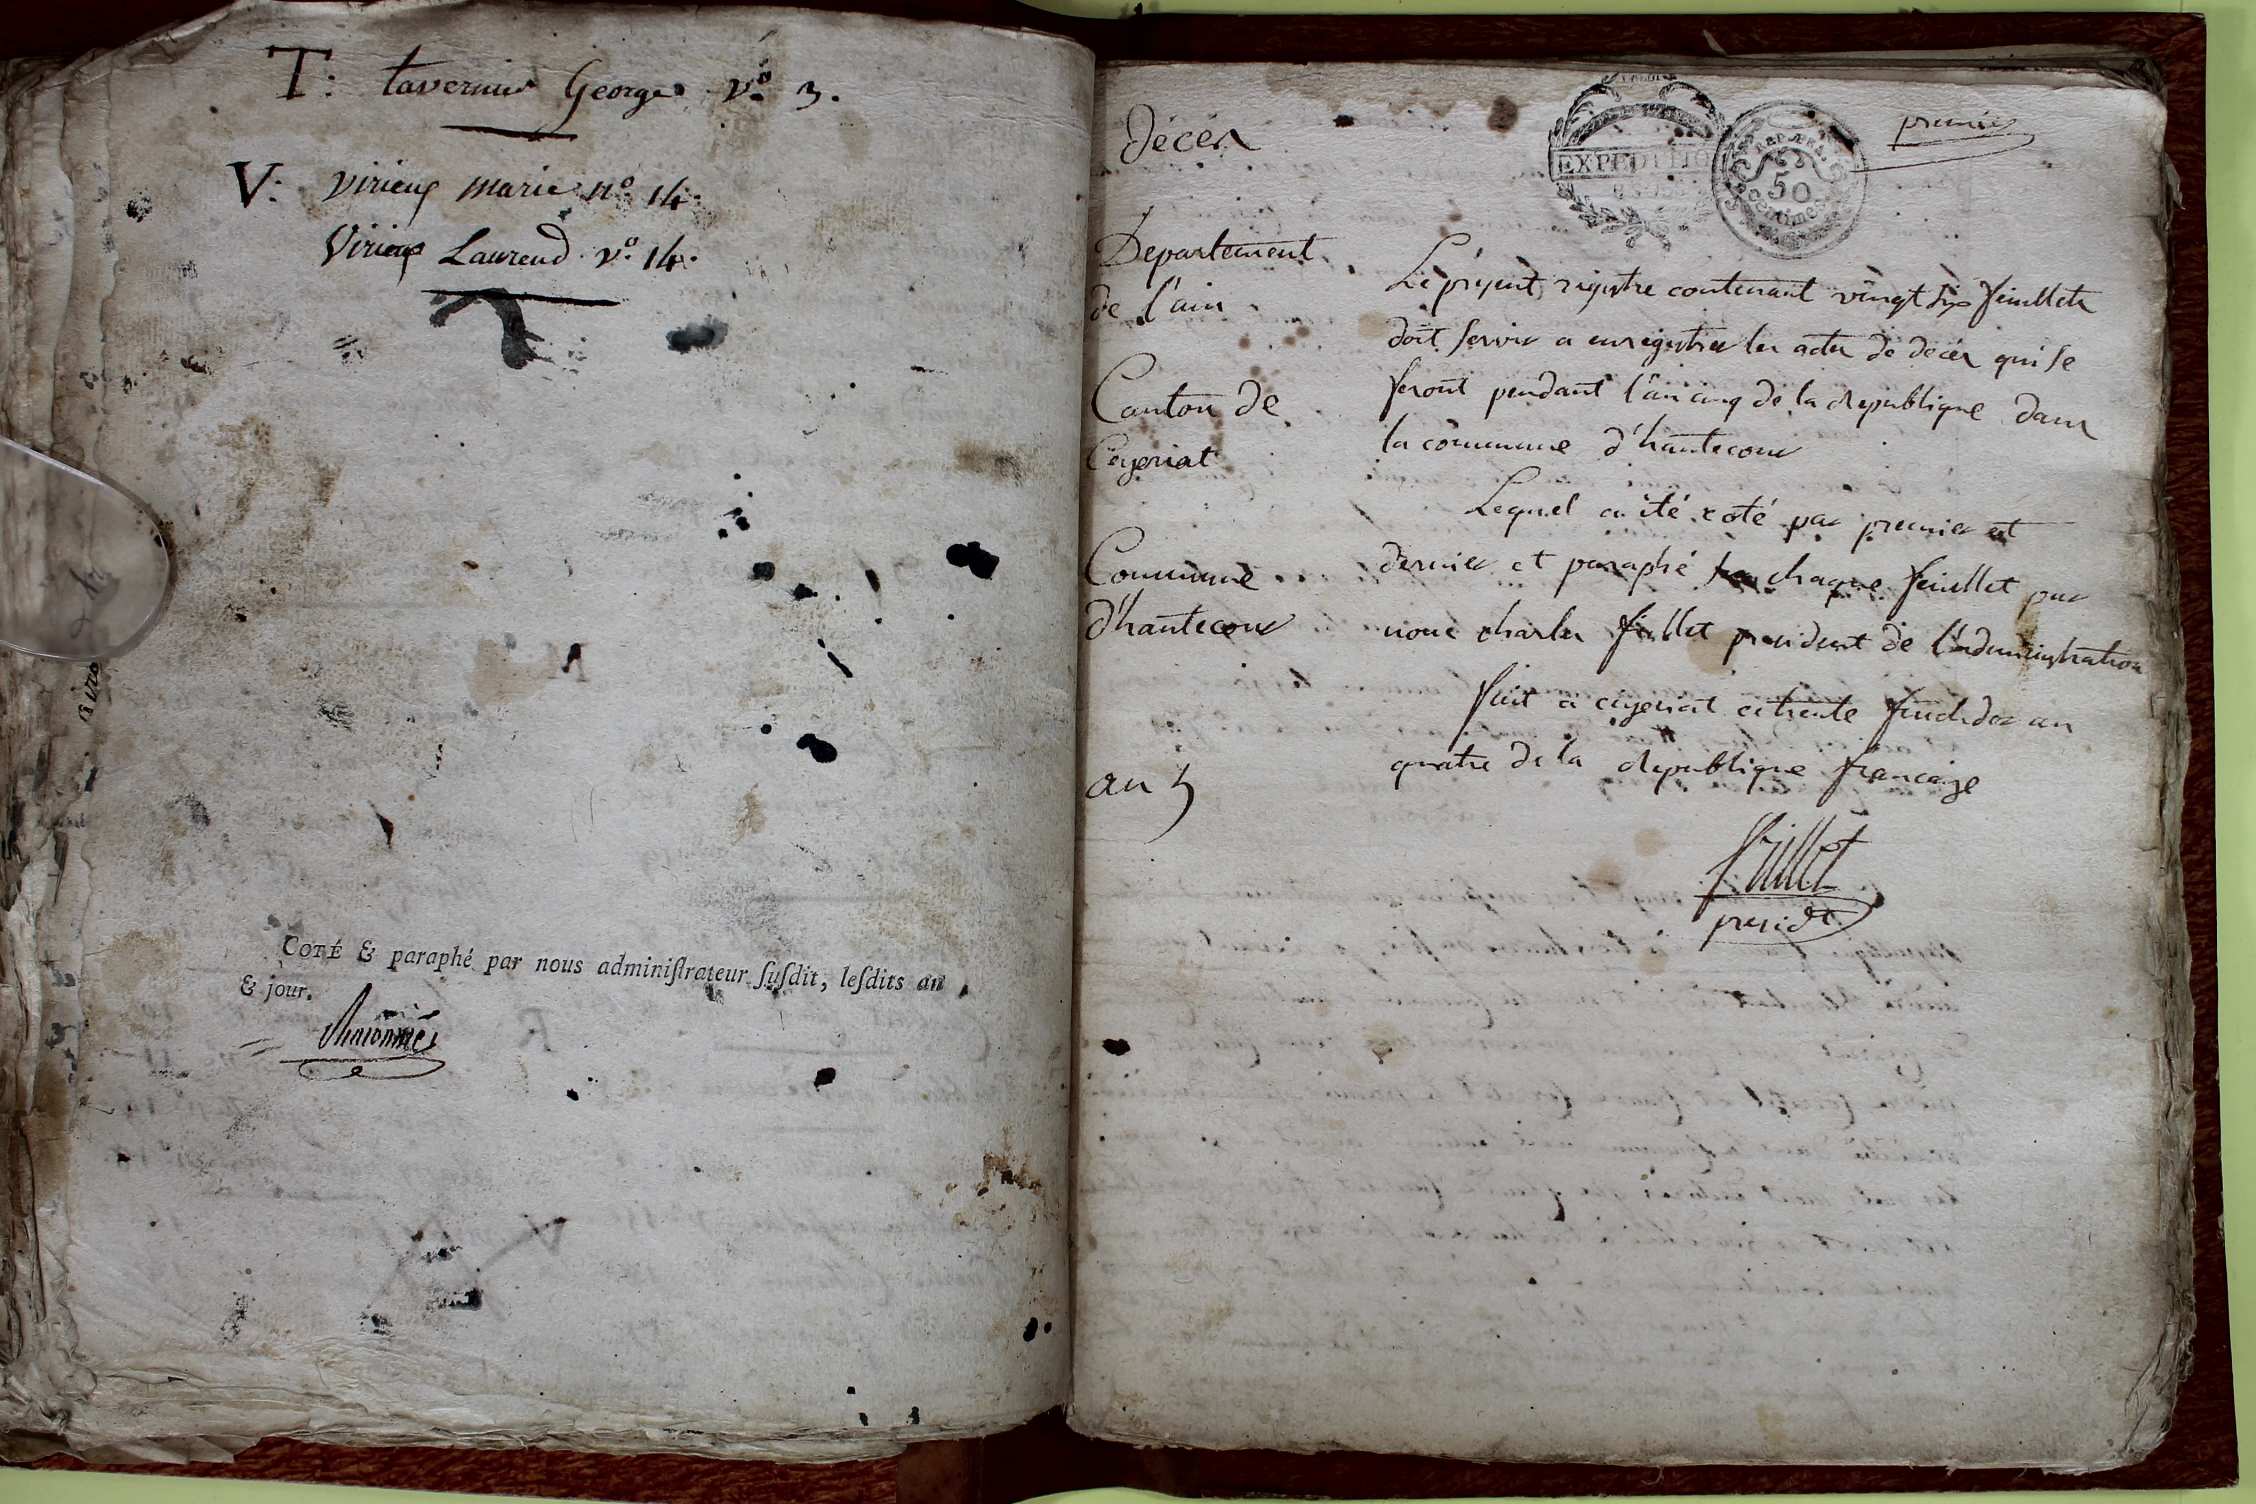 T: tavernier George v° 3.
V: virieux marie n° 14.
Virieux Laurend v° 14.
COTÉ & paraphé par nous adminiſtrateur ſuſdit, leſdits an
& jour.
premier
décés
EXPEDITION
REP. FRA.
50
centimes
Departement
de l'ain
Canton de
Ceyzeriat
Commune
d'hautecour
an 5
Le présent registre contenant vingt six feuillets
doit servir a enregistrer les actes de décés qui se
feront pendant l'an cinq de la republique dans
la commune d'hautecour
Lequel a été coté par premier et
dernier et paraphé sur chaque feuillet par
nous charles fillet president de l'administration
fait a ceyzeriat ce trente fructidor an
quatre de la republique francaize
fillet
presidt